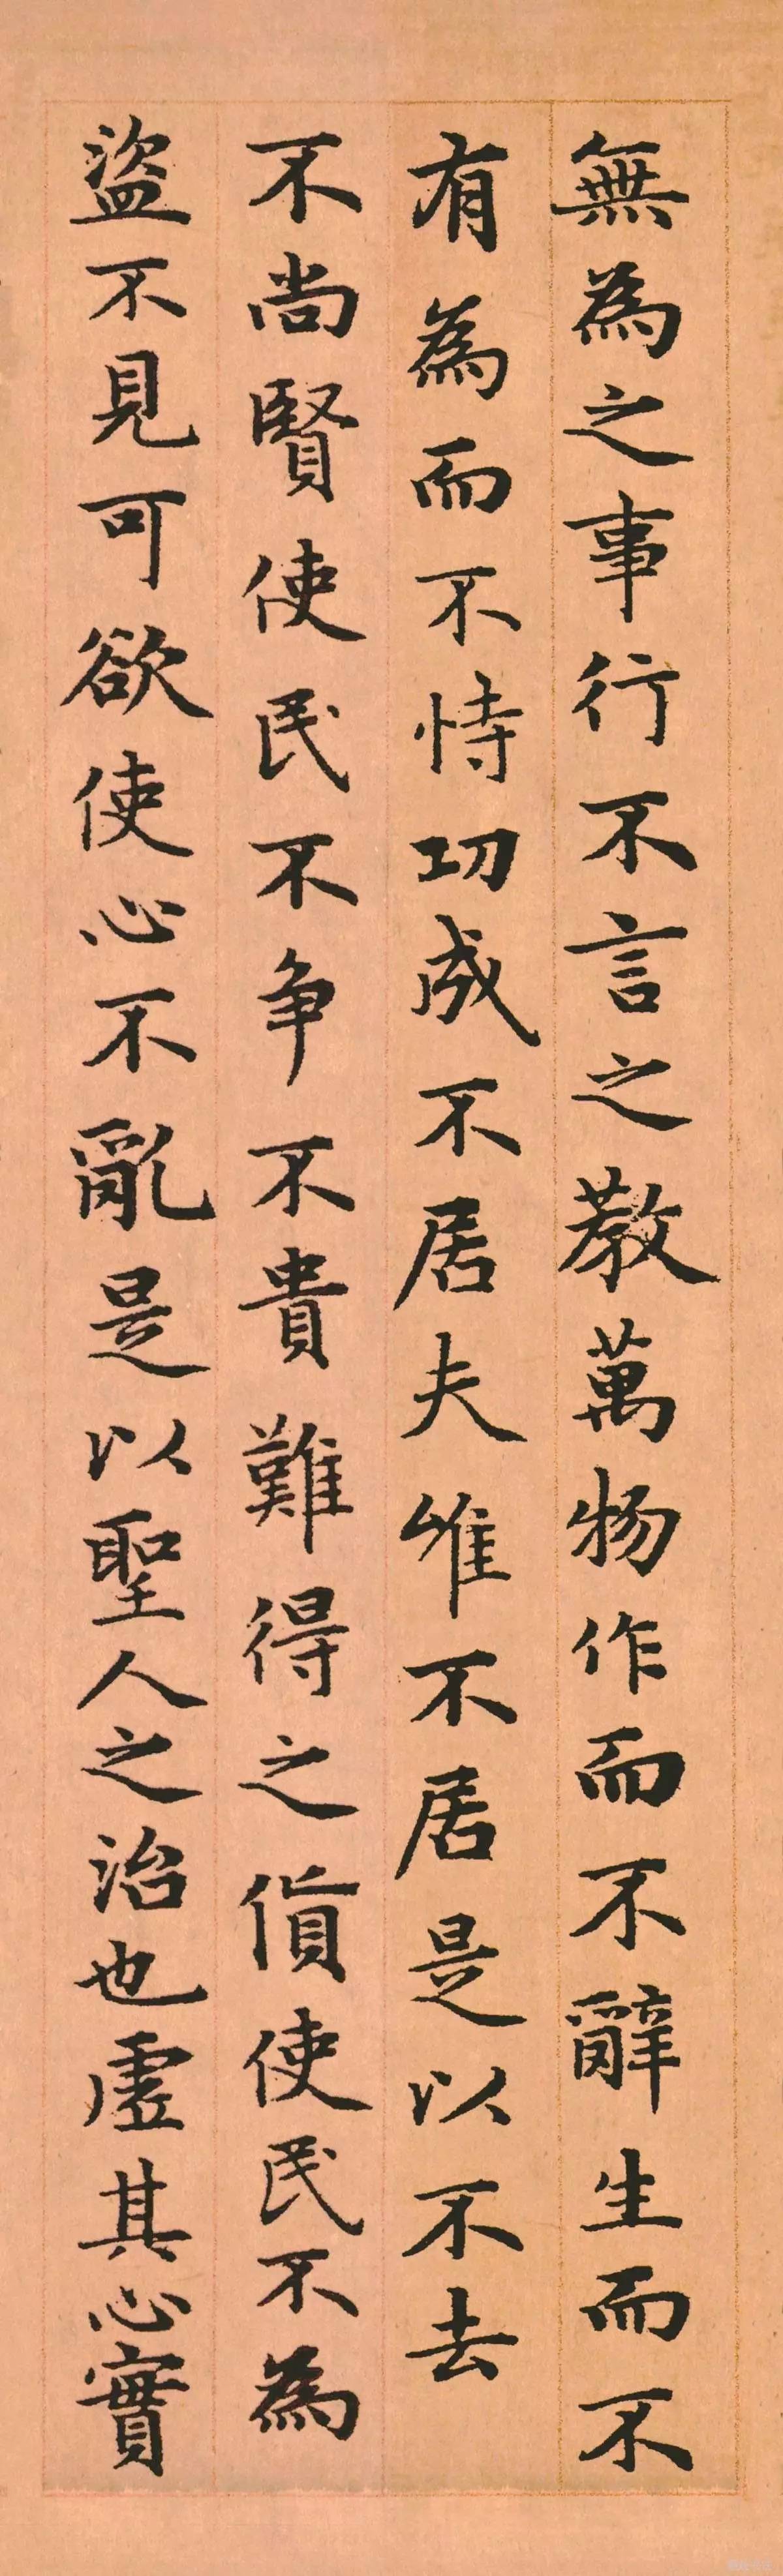 無為之事行不言之教萬物作而不辭生而不
有為而不恃功成不居夫唯不居是以不去
不尚賢使民不争不貴難得之貨使民不為
盜不見可欲使心不亂是以聖人之治也虛其心實